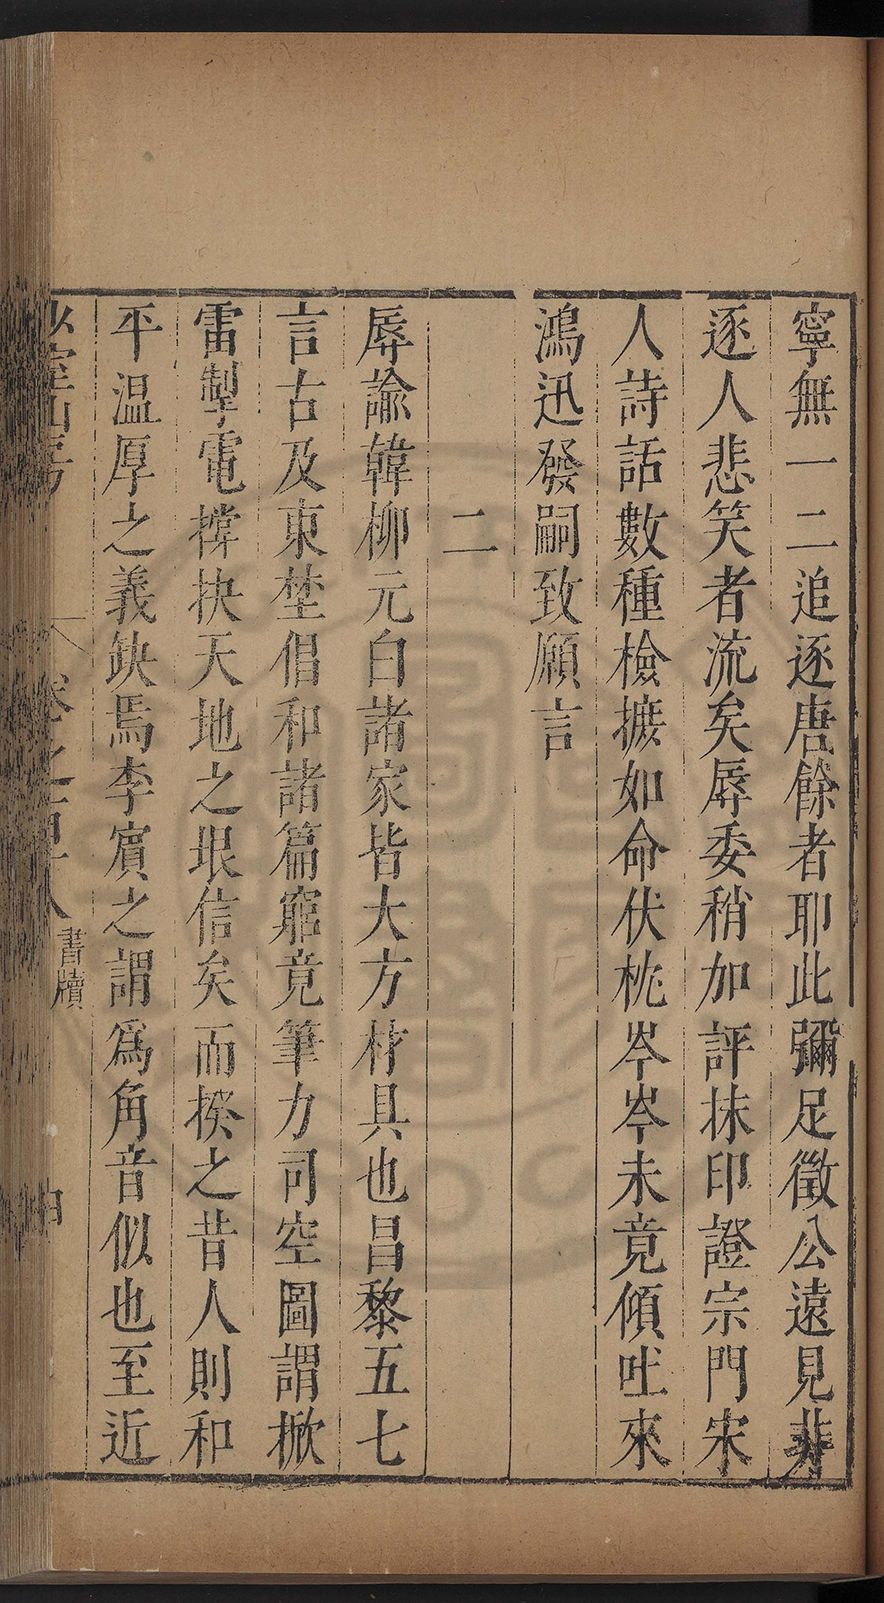 寧無一二追逐唐餘者耶此彌足徵公遠見非
逐人悲笑者流矣辱委稍加評抹印證宗門宋
人詩話數種檢摭如命伏枕岑岑未竟傾吐來
鴻迅發嗣致願言
二
辱諭韓柳元白諸家皆大方材具也昌黎五七
言古及東埜倡和諸篇窮竟筆力司空圖謂掀
雷掣電撐抉天地之垠信矣而揆之昔人則和
平溫厚之義缺焉李賓之謂爲角音似也至近
少室山房 卷之 書牘